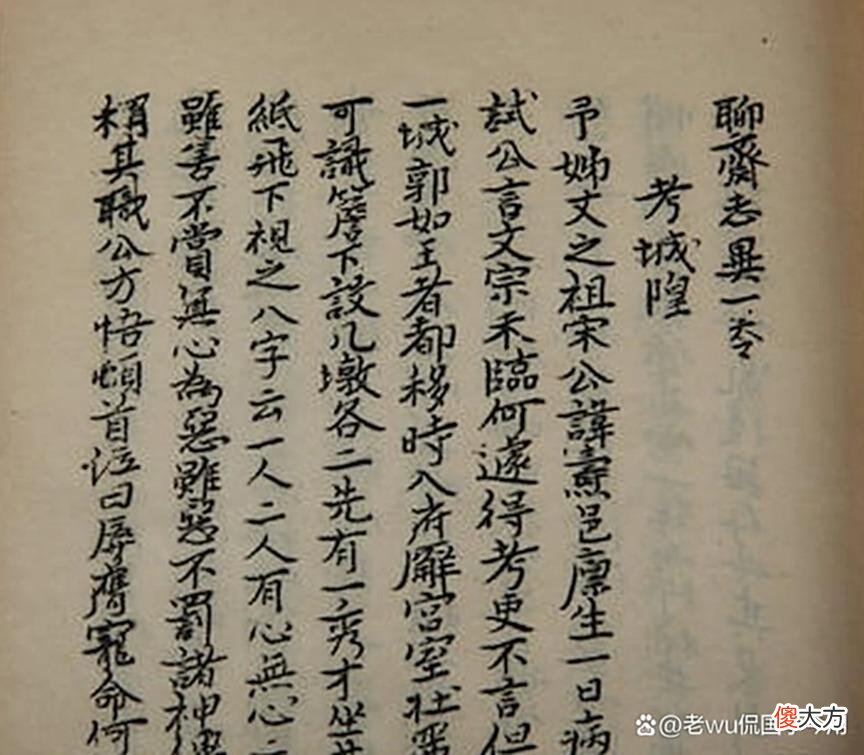 聊齋志異一卷
考城隍
予姊丈之祖宋公諱燾邑廩生一日病
試公言文宗未臨何遽得考吏不言但
一城郭如王者都移時入府廨宮室壯
可識簷下設几墩各二先有一秀才坐其
紙飛下視之八字云一人二人有心無心二
雖善不賞無心為惡雖惡不罰諸神傳
稱其職公方悟頓首泣曰辱膺寵命何
@老wu侃国
傻大方